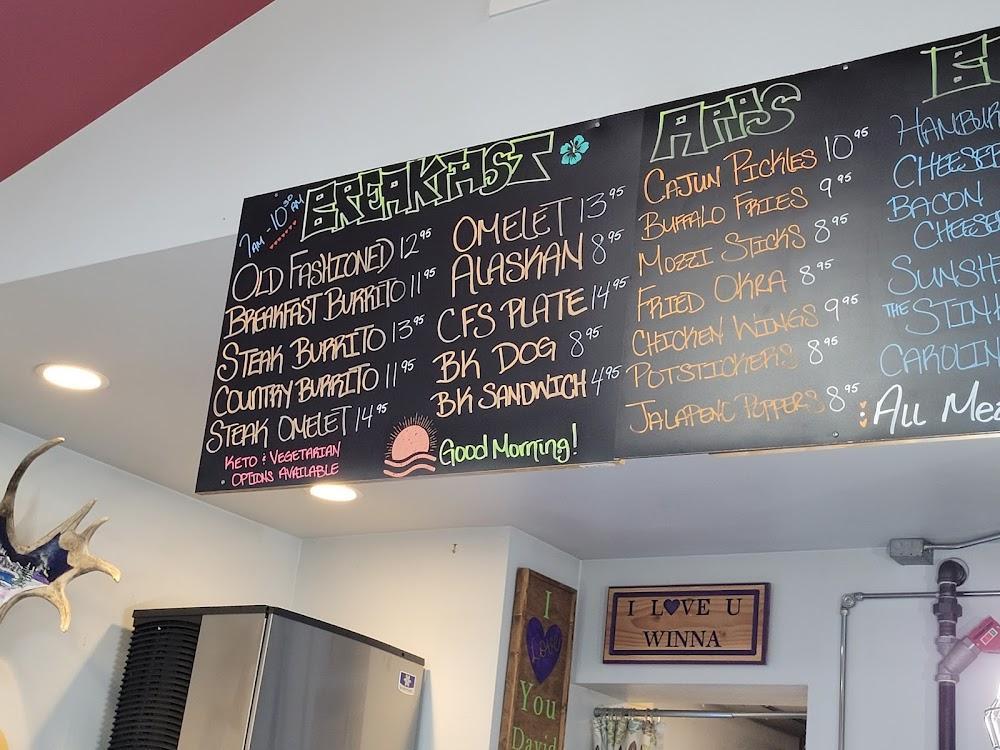 BREAKFAST
7AM - 10³⁰AM
OLD FASHIONED 12⁹⁵
BREAKFAST BURRITO 11⁹⁵
STEAK BURRITO 13⁹⁵
COUNTRY BURRITO 11⁹⁵
STEAK OMELET 14⁹⁵
KETO & VEGETARIAN
OPTIONS AVAILABLE
OMELET 13⁹⁵
ALASKAN 8⁹⁵
CFS PLATE 14⁹⁵
BK DOG 8⁹⁵
BK SANDWICH 4⁹⁵
Good Morning!
APPS
CAJUN PICKLES 10⁹⁵
BUFFALO FRIES 9⁹⁵
MOZZI STICKS 8⁹⁵
FRIED OKRA 8⁹⁵
CHICKEN WINGS 9⁹⁵
POTSTICKERS 8⁹⁵
JALAPENO POPPERS 8⁹⁵
HAMBUR
CHEESEB
BACON
CHEESE
SUNSH
THE STIN
CAROLIN
ALL MEA
I LOVE U
WINNA
I
Love
You
David